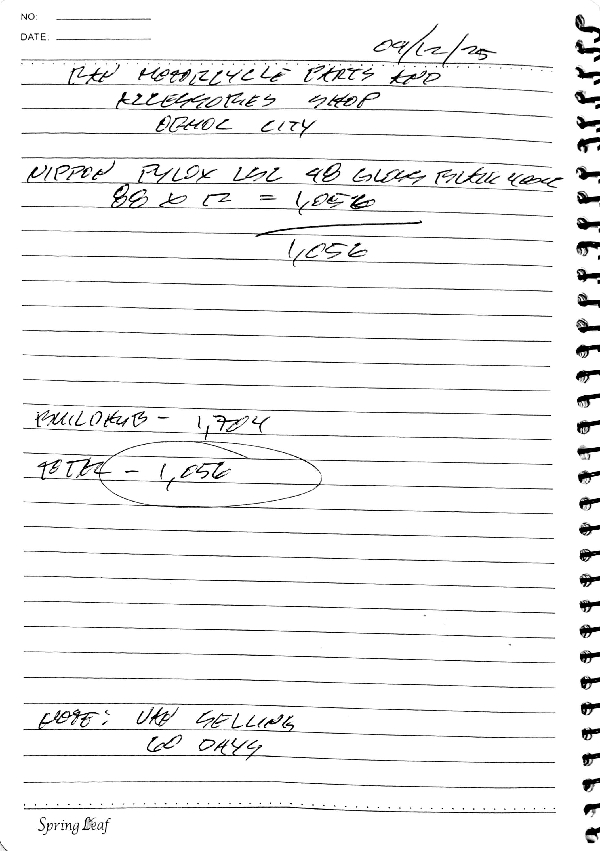 NO:
DATE:
09/12/25
RAN MOTORCYCLE PARTS AND
ACCESSORIES SHOP
ORMOC CITY
NIPPON PYLOX LSC 48 GLOSS BLACK 400CC
88 x 12 = 1,056
1,056
BUILDHUB - 1,704
TOTAL - 1,056
NOTE: VAN SELLING
60 DAYS
Spring Leaf